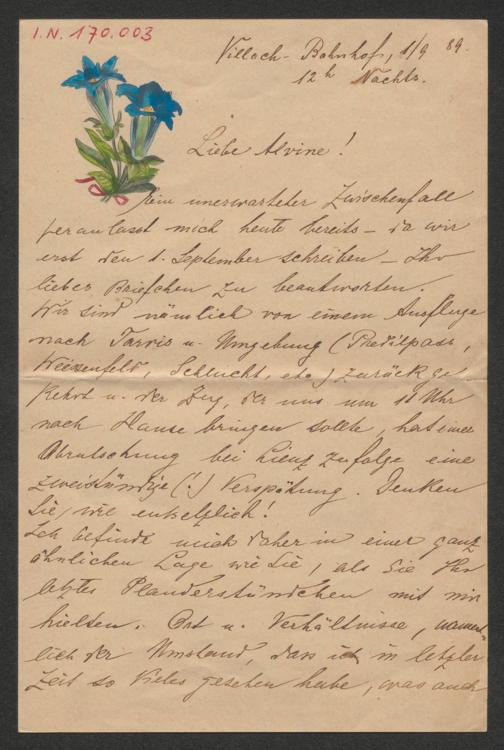 I.N. 170.003
Villach-Bahnhof, 1/9 89.
12h Nachts.
Liebe Alvine!
Ein unerwarteter Zwischenfall
veranlasst mich heute bereits – da wir
erst den 1. September schreiben – Ihr
liebes Briefchen zu beantworten.
Wir sind nämlich von einem Ausfluge
nach Tarvis u. Umgebung (Predilpass,
Weissenfels, Schlucht, etc.) zurückge
kehrt u. der Zug, der uns um 10 Uhr
nach Hause bringen sollte, hat einer
Abrutschung bei Lienz zufolge eine
zweistündige (!) Verspätung. Denken
Sie, wie entsetzlich!
Ich befinde mich daher in einer ganz
ähnlichen Lage wie Sie, als Sie Ihr
letztes Plauderstündchen mit mir
hielten. Ort u. Verhältnisse, nament-
lich der Umstand, dass ich in letzter
Zeit so Vieles gesehen habe, was auch